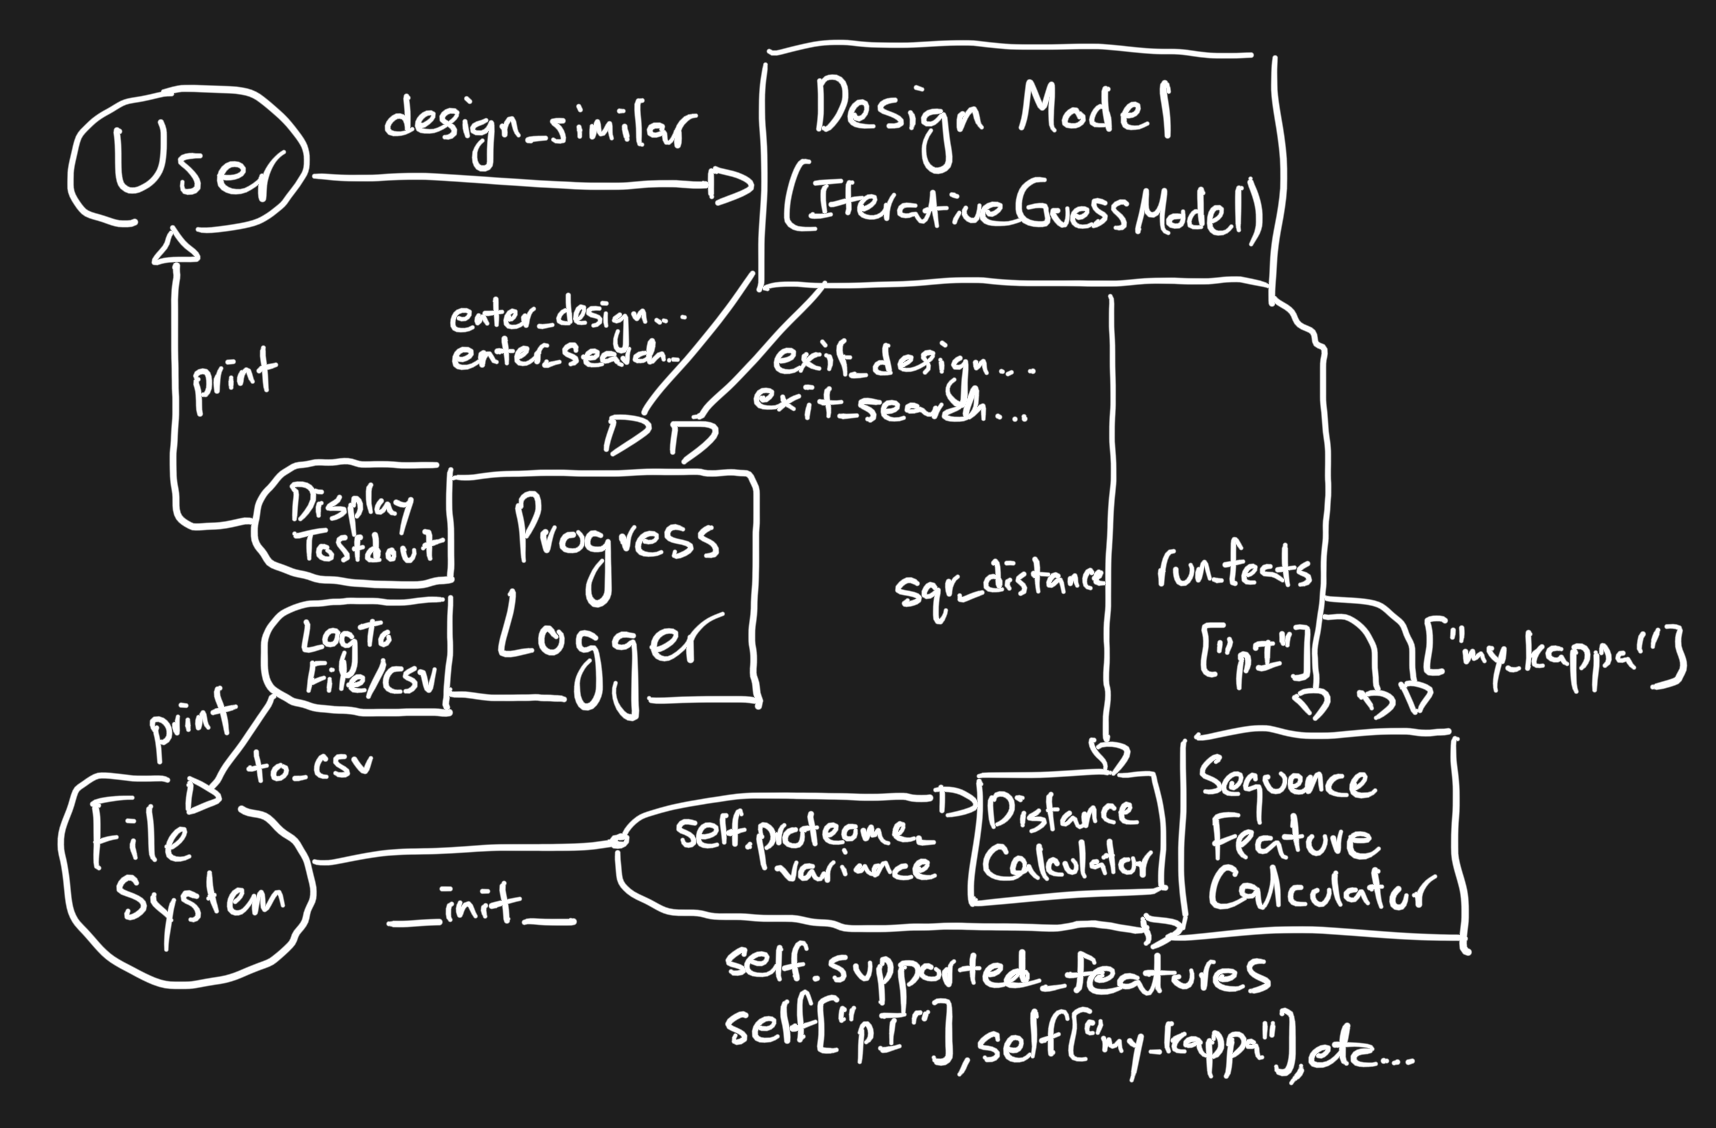 User
design_similar
Design Model
(IterativeGuessModel)
enter_design...
enter_search..
exit_design...
exit_search...
print
Display
ToStdout
Progress
Logger
LogTo
File/CSV
print
to_csv
File
System
__init__
sqr_distance
run_feats
["pI"]
["my_kappa"]
self.proteome_
variance
Distance
Calculator
Sequence
Feature
Calculator
self.supported_features
self["pI"], self["my_kappa"], etc...